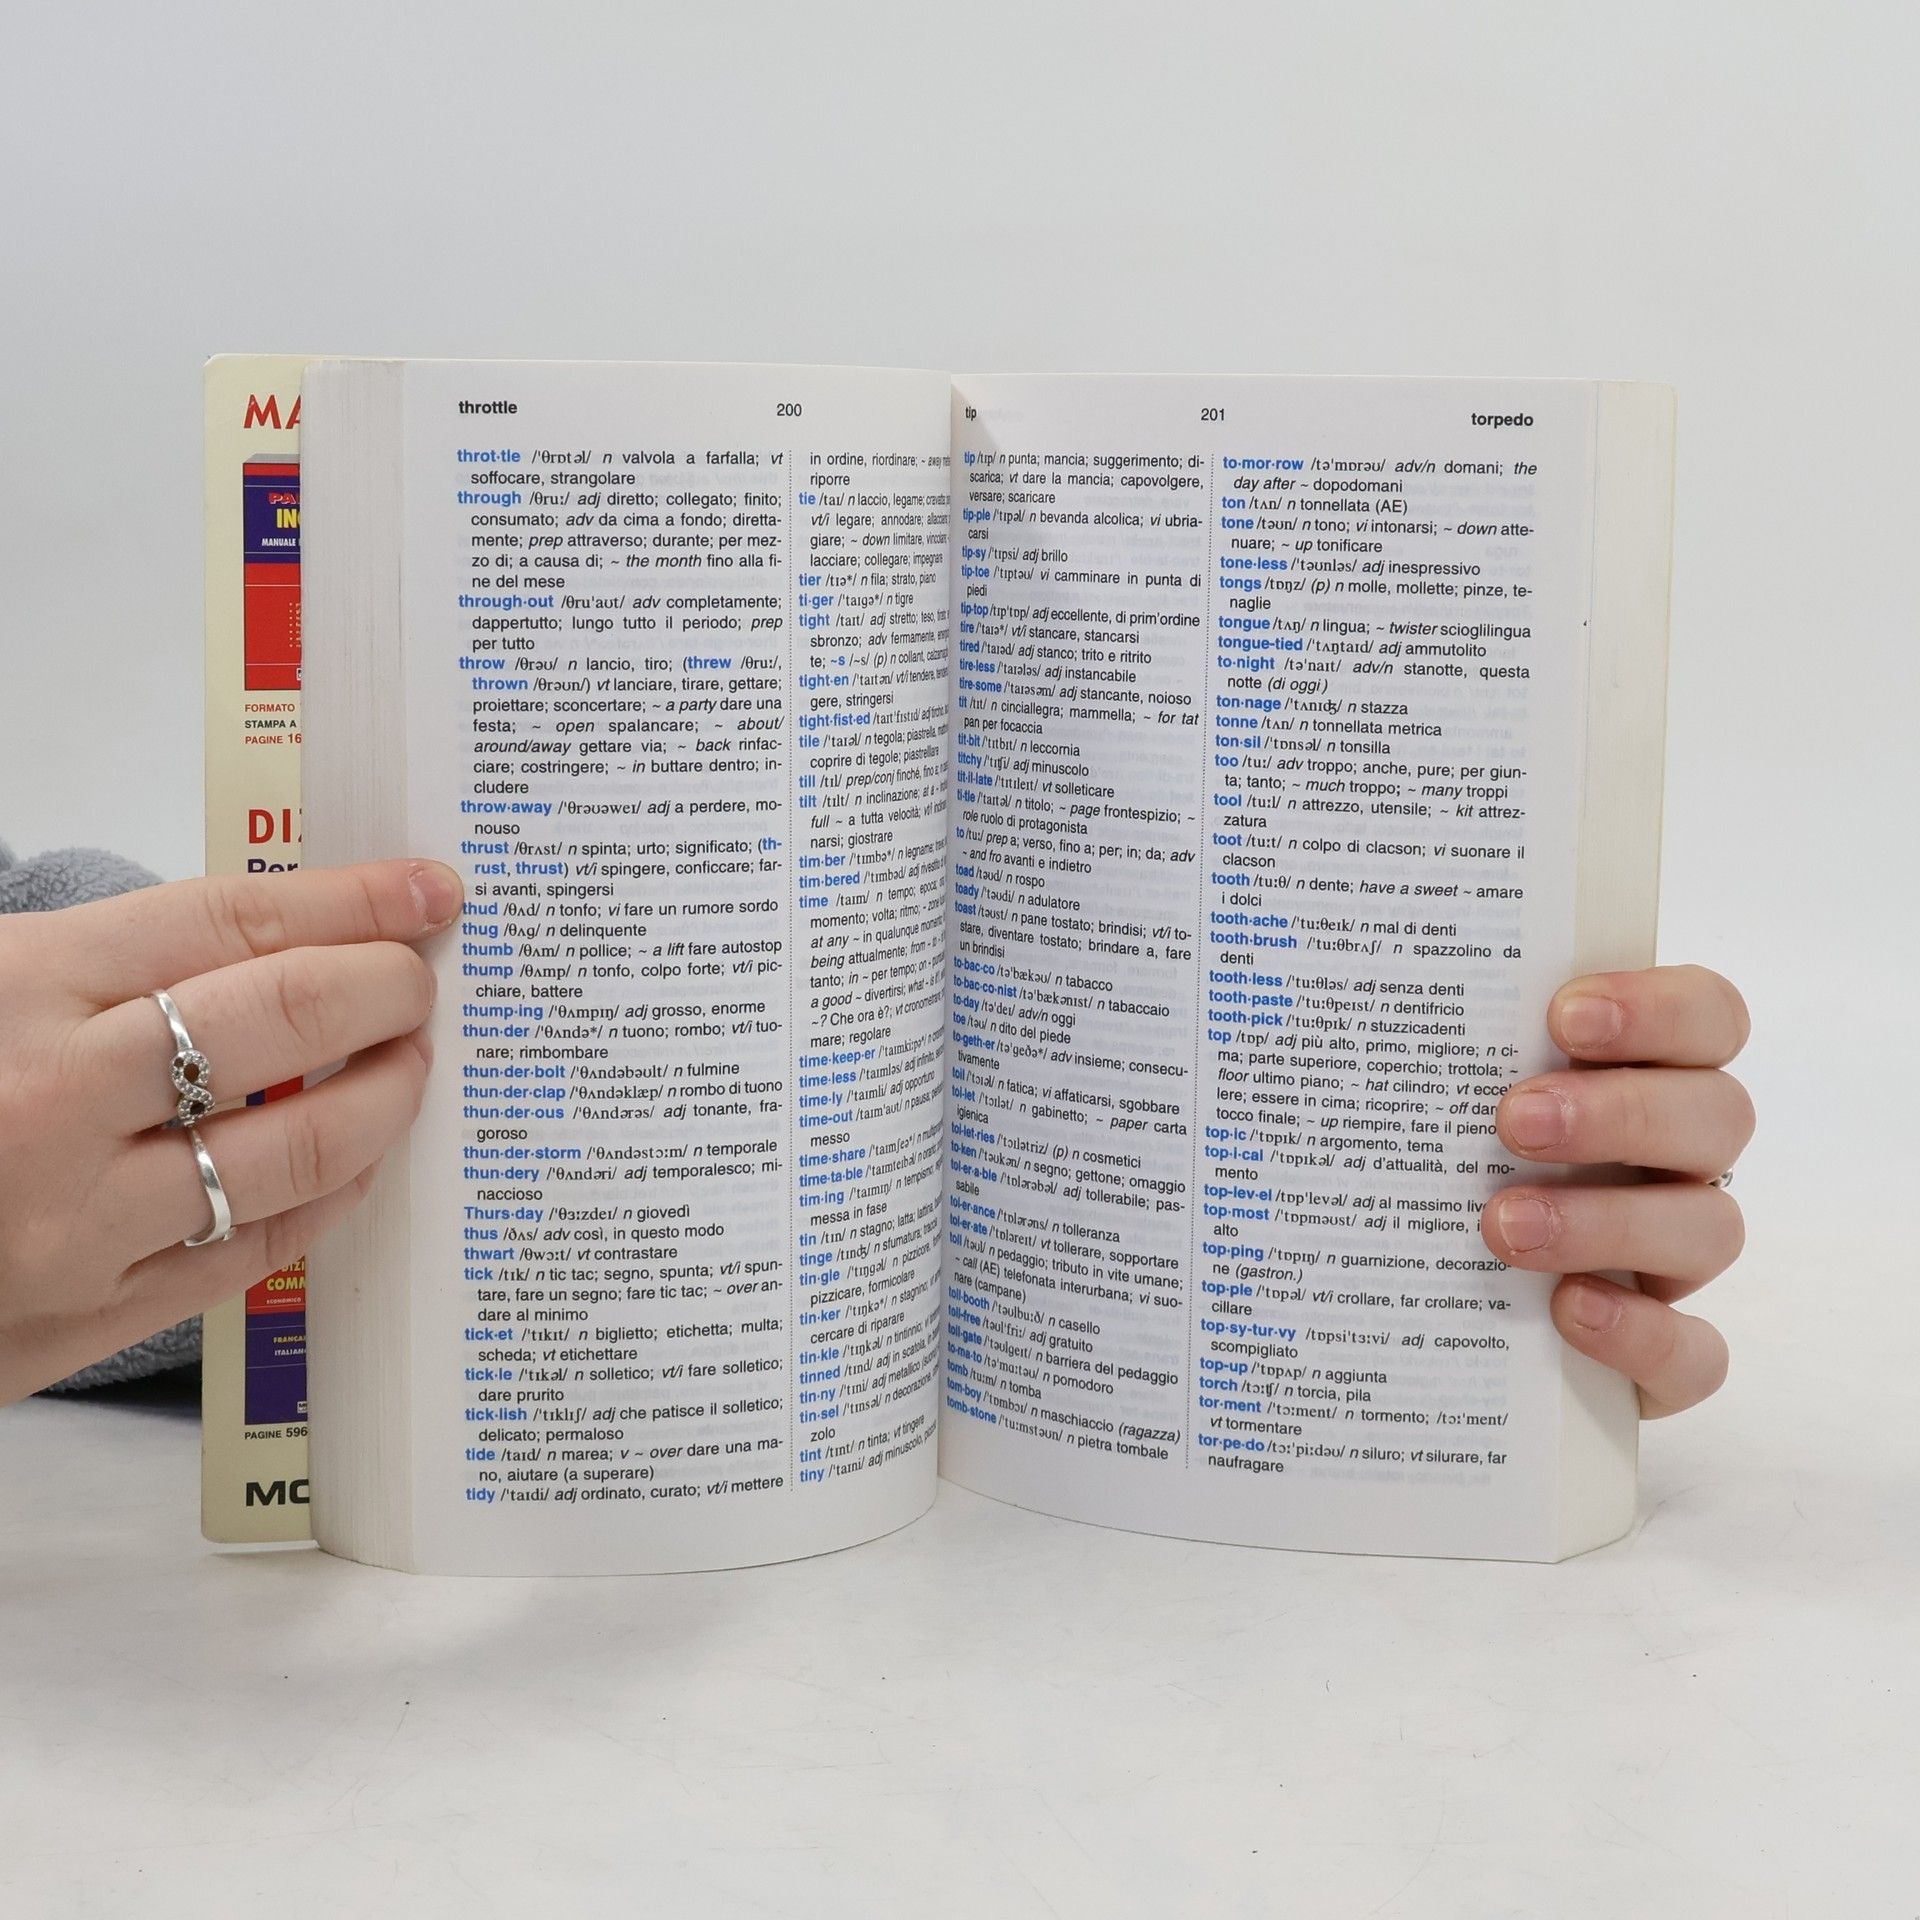 MA
PA
IN
MANUALE
FORMATO
STAMPA A
PAGINE 16
DI
Per
COMM
ECONOMICO
FRANÇA
ITALIAN
PAGINE 596
MO
throttle
200
throt·tle /'θrɒtəl/ n valvola a farfalla; vt
soffocare, strangolare
through /θruː/ adj diretto; collegato; finito;
consumato; adv da cima a fondo; diretta-
mente; prep attraverso; durante; per mez-
zo di; a causa di; ~ the month fino alla fi-
ne del mese
through·out /θru'aʊt/ adv completamente;
dappertutto; lungo tutto il periodo; prep
per tutto
throw /θrəʊ/ n lancio, tiro; (threw /θruː/,
thrown /θrəʊn/) vt lanciare, tirare, gettare;
proiettare; sconcertare; ~ a party dare una
festa; ~ open spalancare; ~ about/
around/away gettare via; ~ back rinfac-
ciare; costringere; ~ in buttare dentro; in-
cludere
throw·away /'θrəʊəweɪ/ adj a perdere, mo-
nouso
thrust /θrʌst/ n spinta; urto; significato; (th-
rust, thrust) vt/i spingere, conficcare; far-
si avanti, spingersi
thud /θʌd/ n tonfo; vi fare un rumore sordo
thug /θʌg/ n delinquente
thumb /θʌm/ n pollice; ~ a lift fare autostop
thump /θʌmp/ n tonfo, colpo forte; vt/i pic-
chiare, battere
thump·ing /'θʌmpɪŋ/ adj grosso, enorme
thun·der /'θʌndə*/ n tuono; rombo; vt/i tuo-
nare; rimbombare
thun·der·bolt /'θʌndəbəʊlt/ n fulmine
thun·der·clap /'θʌndəklæp/ n rombo di tuono
thun·der·ous /'θʌndərəs/ adj tonante, fra-
goroso
thun·der·storm /'θʌndəstɔːm/ n temporale
thun·dery /'θʌndəri/ adj temporalesco; mi-
naccioso
Thurs·day /'θɜːzdeɪ/ n giovedì
thus /ðʌs/ adv così, in questo modo
thwart /θwɔːt/ vt contrastare
tick /tɪk/ n tic tac; segno, spunta; vt/i spun-
tare, fare un segno; fare tic tac; ~ over an-
dare al minimo
tick·et /'tɪkɪt/ n biglietto; etichetta; multa;
scheda; vt etichettare
tick·le /'tɪkəl/ n solletico; vt/i fare solletico;
dare prurito
tick·lish /'tɪklɪʃ/ adj che patisce il solletico;
delicato; permaloso
tide /taɪd/ n marea; v ~ over dare una ma-
no, aiutare (a superare)
tidy /'taɪdi/ adj ordinato, curato; vt/i mettere
in ordine, riordinare; ~ away
riporre
tie /taɪ/ n laccio, legame; cravatta;
vt/i legare; annodare; allacciare
giare; ~ down limitare, vincolare
lacciare; collegare; impegnare
tier /tɪə*/ n fila; strato, piano
ti·ger /'taɪgə*/ n tigre
tight /taɪt/ adj stretto; teso,
sbronzo; adv fermamente,
te; ~s /~s/ (p) n collant,
tight·en /'taɪtən/ vt/i tendere,
gere, stringersi
tight·fist·ed /taɪt'fɪstɪd/ adj
tile /'taɪəl/ n tegola; piastrella,
coprire di tegole; piastrellare
till /tɪl/ prep/conj finché, fino a;
tilt /tɪlt/ n inclinazione; at a
full ~ a tutta velocità; vt/i
narsi; giostrare
tim·ber /'tɪmbə*/ n legname;
tim·bered /'tɪmbəd/ adj rivestito
time /taɪm/ n tempo; epoca;
momento; volta; ritmo; ~ zone
at any ~ in qualunque momento;
being attualmente; from ~ to
tanto; in ~ per tempo; on
a good ~ divertirsi; what
~? Che ora è?; vt cronometrare;
mare; regolare
time·keep·er /'taɪmkiːpə*/ n
time·less /'taɪmləs/ adj infinito,
time·ly /'taɪmli/ adj opportuno
time-out /taɪm'aʊt/ n pausa;
messo
time·share /'taɪmʃeə*/ n
time·ta·ble /'taɪmteɪbəl/ n orario;
tim·ing /'taɪmɪŋ/ n tempismo,
messa in fase
tin /tɪn/ n stagno; latta; lattina,
tinge /tɪndʒ/ n sfumatura; traccia
tin·gle /'tɪŋgəl/ n pizzicore,
pizzicare, formicolare
tin·ker /'tɪŋkə*/ n stagnino;
cercare di riparare
tin·kle /'tɪŋkəl/ n tintinnio;
tinned /tɪnd/ adj in scatola,
tin·ny /'tɪni/ adj metallico
tin·sel /'tɪnsəl/ n decorazione,
zolo
tint /tɪnt/ n tinta; vt tingere
tiny /'taɪni/ adj minuscolo,
tip
201
torpedo
tip /tɪp/ n punta; mancia; suggerimento; di-
scarica; vt dare la mancia; capovolgere,
versare; scaricare
tip·ple /'tɪpəl/ n bevanda alcolica; vi ubria-
carsi
tip·sy /'tɪpsi/ adj brillo
tip·toe /'tɪptəʊ/ vi camminare in punta di
piedi
tip·top /tɪp'tɒp/ adj eccellente, di prim'ordine
tire /'taɪə*/ vt/i stancare, stancarsi
tired /'taɪəd/ adj stanco; trito e ritrito
tire·less /'taɪələs/ adj instancabile
tire·some /'taɪəsəm/ adj stancante, noioso
tit /tɪt/ n cinciallegra; mammella; ~ for tat
pan per focaccia
tit·bit /'tɪtbɪt/ n leccornia
titchy /'tɪtʃi/ adj minuscolo
tit·il·late /'tɪtɪleɪt/ vt solleticare
ti·tle /'taɪtəl/ n titolo; ~ page frontespizio; ~
role ruolo di protagonista
to /tuː/ prep a; verso, fino a; per; in; da; adv
~ and fro avanti e indietro
toad /təʊd/ n rospo
toady /'təʊdi/ n adulatore
toast /təʊst/ n pane tostato; brindisi; vt/i to-
stare, diventare tostato; brindare a, fare
un brindisi
to·bac·co /tə'bækəʊ/ n tabacco
to·bac·co·nist /tə'bækənɪst/ n tabaccaio
to·day /tə'deɪ/ adv/n oggi
toe /təʊ/ n dito del piede
to·geth·er /tə'geðə*/ adv insieme; consecu-
tivamente
toil /'tɔɪəl/ n fatica; vi affaticarsi, sgobbare
toi·let /'tɔɪlət/ n gabinetto; ~ paper carta
igienica
toi·let·ries /'tɔɪlətriz/ (p) n cosmetici
to·ken /'təʊkən/ n segno; gettone; omaggio
tol·er·a·ble /'tɒlərəbəl/ adj tollerabile; pas-
sabile
tol·er·ance /'tɒlərəns/ n tolleranza
tol·er·ate /'tɒləreɪt/ vt tollerare, sopportare
toll /təʊl/ n pedaggio; tributo in vite umane;
~ call (AE) telefonata interurbana; vi suo-
nare (campane)
toll·booth /'təʊlbuːð/ n casello
toll-free /təʊl'friː/ adj gratuito
toll·gate /'təʊlgeɪt/ n barriera del pedaggio
to·ma·to /tə'mɑːtəʊ/ n pomodoro
tomb /tuːm/ n tomba
tom·boy /'tɒmbɔɪ/ n maschiaccio (ragazza)
tomb·stone /'tuːmstəʊn/ n pietra tombale
to·mor·row /tə'mɒrəʊ/ adv/n domani; the
day after ~ dopodomani
ton /tʌn/ n tonnellata (AE)
tone /təʊn/ n tono; vi intonarsi; ~ down atte-
nuare; ~ up tonificare
tone·less /'təʊnləs/ adj inespressivo
tongs /tɒŋz/ (p) n molle, mollette; pinze, te-
naglie
tongue /tʌŋ/ n lingua; ~ twister scioglilingua
tongue-tied /'tʌŋtaɪd/ adj ammutolito
to·night /tə'naɪt/ adv/n stanotte, questa
notte (di oggi)
ton·nage /'tʌnɪdʒ/ n stazza
tonne /tʌn/ n tonnellata metrica
ton·sil /'tɒnsəl/ n tonsilla
too /tuː/ adv troppo; anche, pure; per giun-
ta; tanto; ~ much troppo; ~ many troppi
tool /tuːl/ n attrezzo, utensile; ~ kit attrez-
zatura
toot /tuːt/ n colpo di clacson; vi suonare il
clacson
tooth /tuːθ/ n dente; have a sweet ~ amare
i dolci
tooth·ache /'tuːθeɪk/ n mal di denti
tooth·brush /'tuːθbrʌʃ/ n spazzolino da
denti
tooth·less /'tuːθləs/ adj senza denti
tooth·paste /'tuːθpeɪst/ n dentifricio
tooth·pick /'tuːθpɪk/ n stuzzicadenti
top /tɒp/ adj più alto, primo, migliore; n ci-
ma; parte superiore, coperchio; trottola; ~
floor ultimo piano; ~ hat cilindro; vt eccel-
lere; essere in cima; ricoprire; ~ off dar
tocco finale; ~ up riempire, fare il pieno
top·ic /'tɒpɪk/ n argomento, tema
top·i·cal /'tɒpɪkəl/ adj d'attualità, del mo-
mento
top-lev·el /tɒp'levəl/ adj al massimo liv
top·most /'tɒpməʊst/ adj il migliore, i
alto
top·ping /'tɒpɪŋ/ n guarnizione, decorazio-
ne (gastron.)
top·ple /'tɒpəl/ vt/i crollare, far crollare; va-
cillare
top·sy-tur·vy /tɒpsi'tɜːvi/ adj capovolto,
scompigliato
top-up /'tɒpʌp/ n aggiunta
torch /tɔːtʃ/ n torcia, pila
tor·ment /'tɔːment/ n tormento; /tɔː'ment/
vt tormentare
tor·pe·do /tɔː'piːdəʊ/ n siluro; vt silurare, far
naufragare